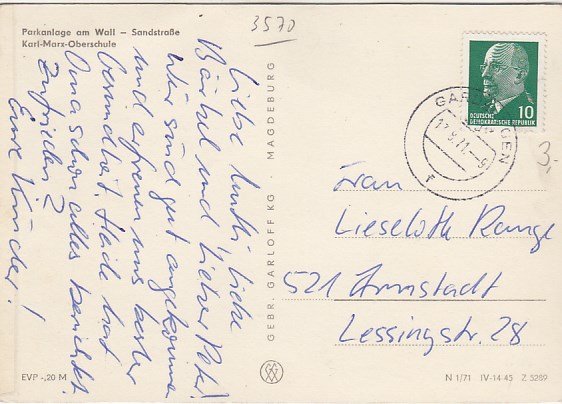 3570
Parkanlage am Wall – Sandstraße
Karl-Marx-Oberschule
Liebe Mutti, liebe
Bärbel und lieber Peter!
Wir sind gut angekommen
und erfreuen uns bester
Gesundheit. Heide hat
Oma schon alles berichtet.
Zufrieden?
Eure Kinder!
GEBR. GARLOFF KG · MAGDEBURG
DEUTSCHE
DEMOKRATISCHE REPUBLIK
10
3,-
Frau
Lieseloth Range
521 Arnstadt
Lessingstr. 28
EVP -,20 M
N 1/71 IV-14-45 Z 5289